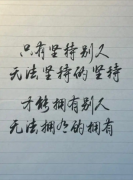 只有坚持别人
无法坚持的坚持
才能拥有别人
无法拥有的拥有